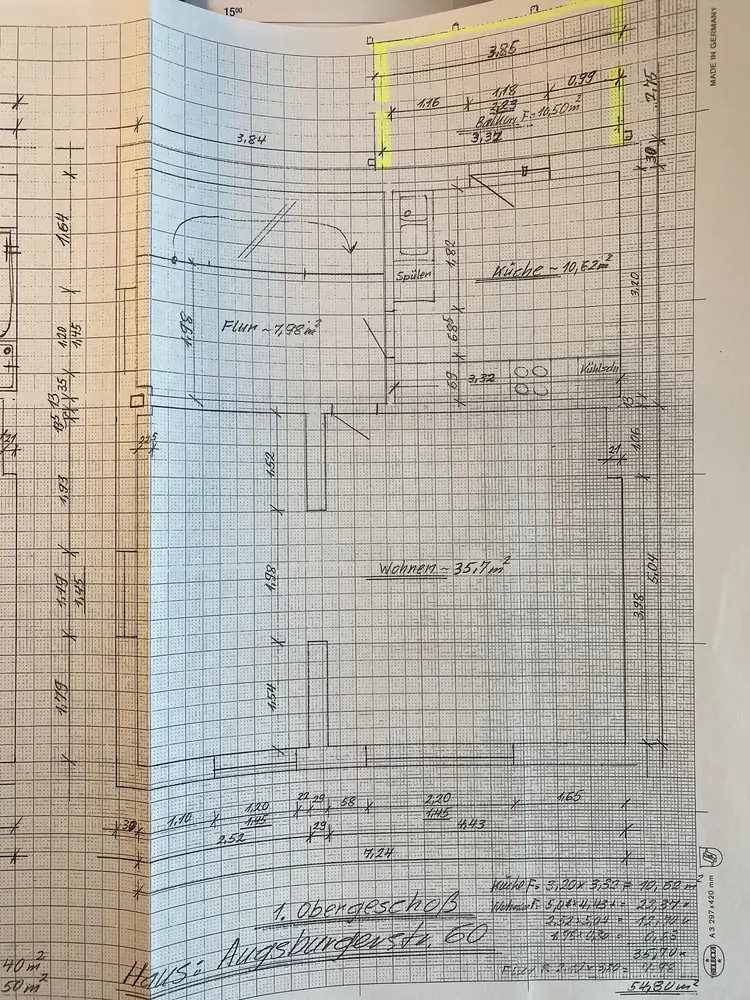 15⁰⁰
MADE IN GERMANY
3,85
0,99
1,18
1,16
2,23
Balkon F = 10,50 m²
3,37
30
3,84
1,64
1,82
Spülen
Küche ~ 10,62 m²
3,20
1,98
Flur ~ 7,98 m²
68⁵
1,20
1,45
69
3,32
Kühlsch
35
13
13
1,06
21
21
22⁵
1,52
1,93
Wohnen ~ 35,7 m²
1,98
5,04
1,19
1,45
3,98
1,54
1,79
1,10
1,20
1,45
22
29
58
2,20
1,45
1,65
30
2,52
29
4,43
7,24
1. Obergeschoß
Haus: Augsburgerstr. 60
Küche F = 3,20 x 3,32 = 10,62 m²
Wohnen F = 5,04 x 4,43 = 22,37
2,52 x 5,04 = 12,70
35,70
54,80 m²
40 m²
50 m²
A3 297 x 420 mm